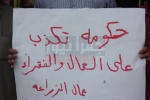 حكومه تكذب
على العمال والفقراء
عمال الزراعه